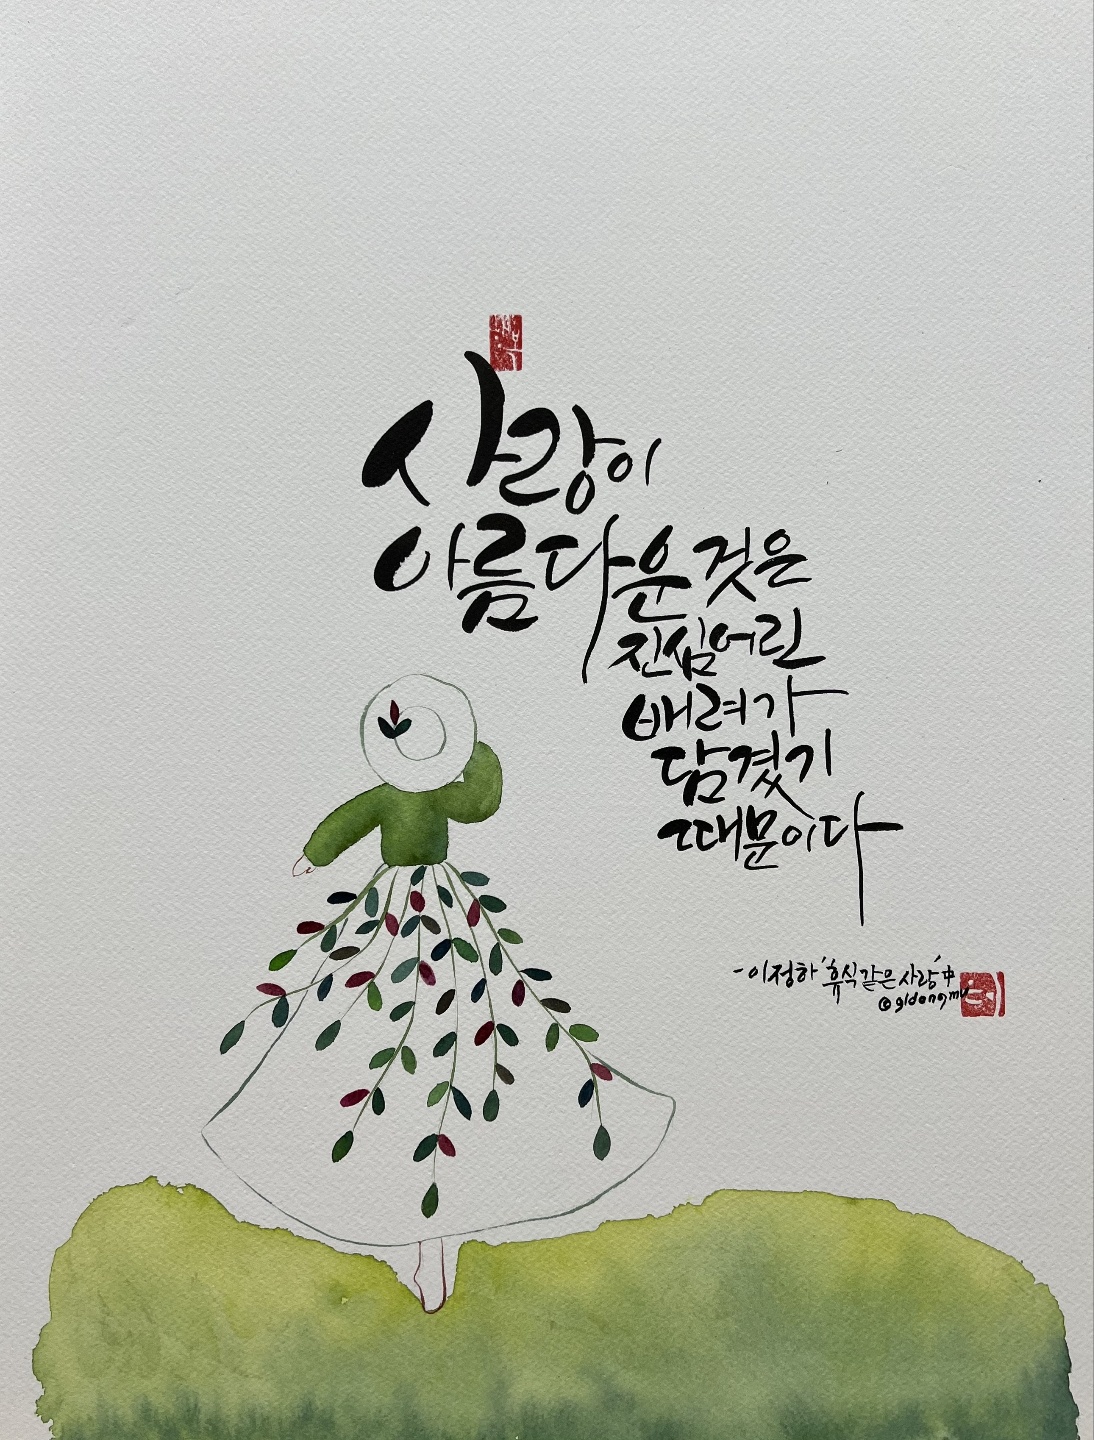 사랑이
아름다운 것은
진심어린
배려가
담겼기
때문이다
-이정하 '휴식같은 사랑' 中
©gldongmu